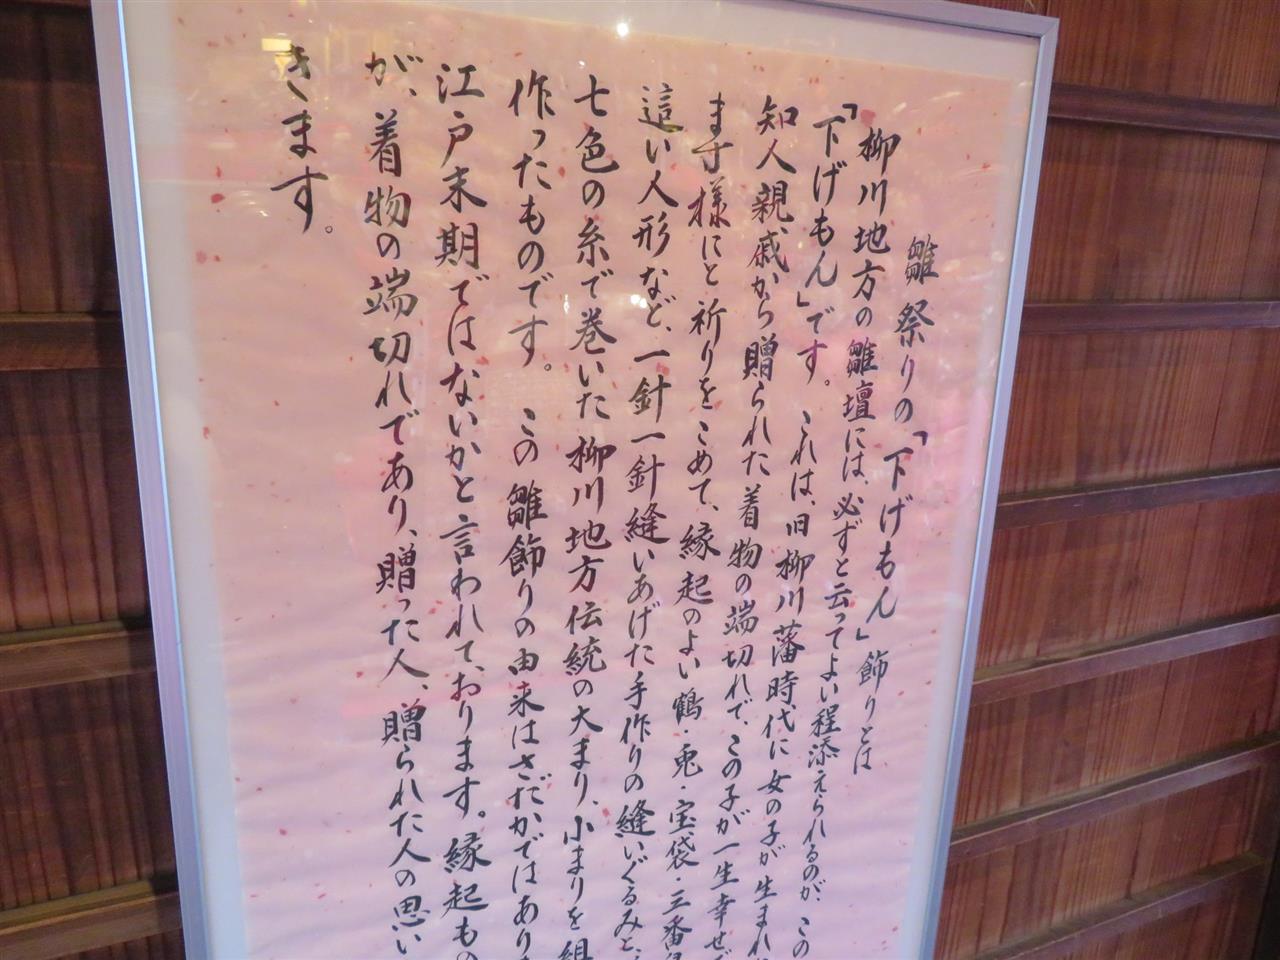 雛祭りの「下げもん」飾りとは
柳川地方の雛壇には、必ずと云ってよい程添えられるのが、この
「下げもん」です。これは、旧柳川藩時代に女の子が生まれ
知人親戚から贈られた着物の端切れで、この子が一生幸せで
ます様にと祈りをこめて、縁起のよい鶴・兎・宝袋・三番
這い人形など、一針一針縫いあげた手作りの縫いぐるみと、
七色の糸で巻いた柳川地方伝統の大まり、小まりを組
作ったものです。この雛飾りの由来はさだかではあり
江戸末期ではないかと言われて、おります。縁起もの
が、着物の端切れであり、贈った人、贈られた人の思い
きます。